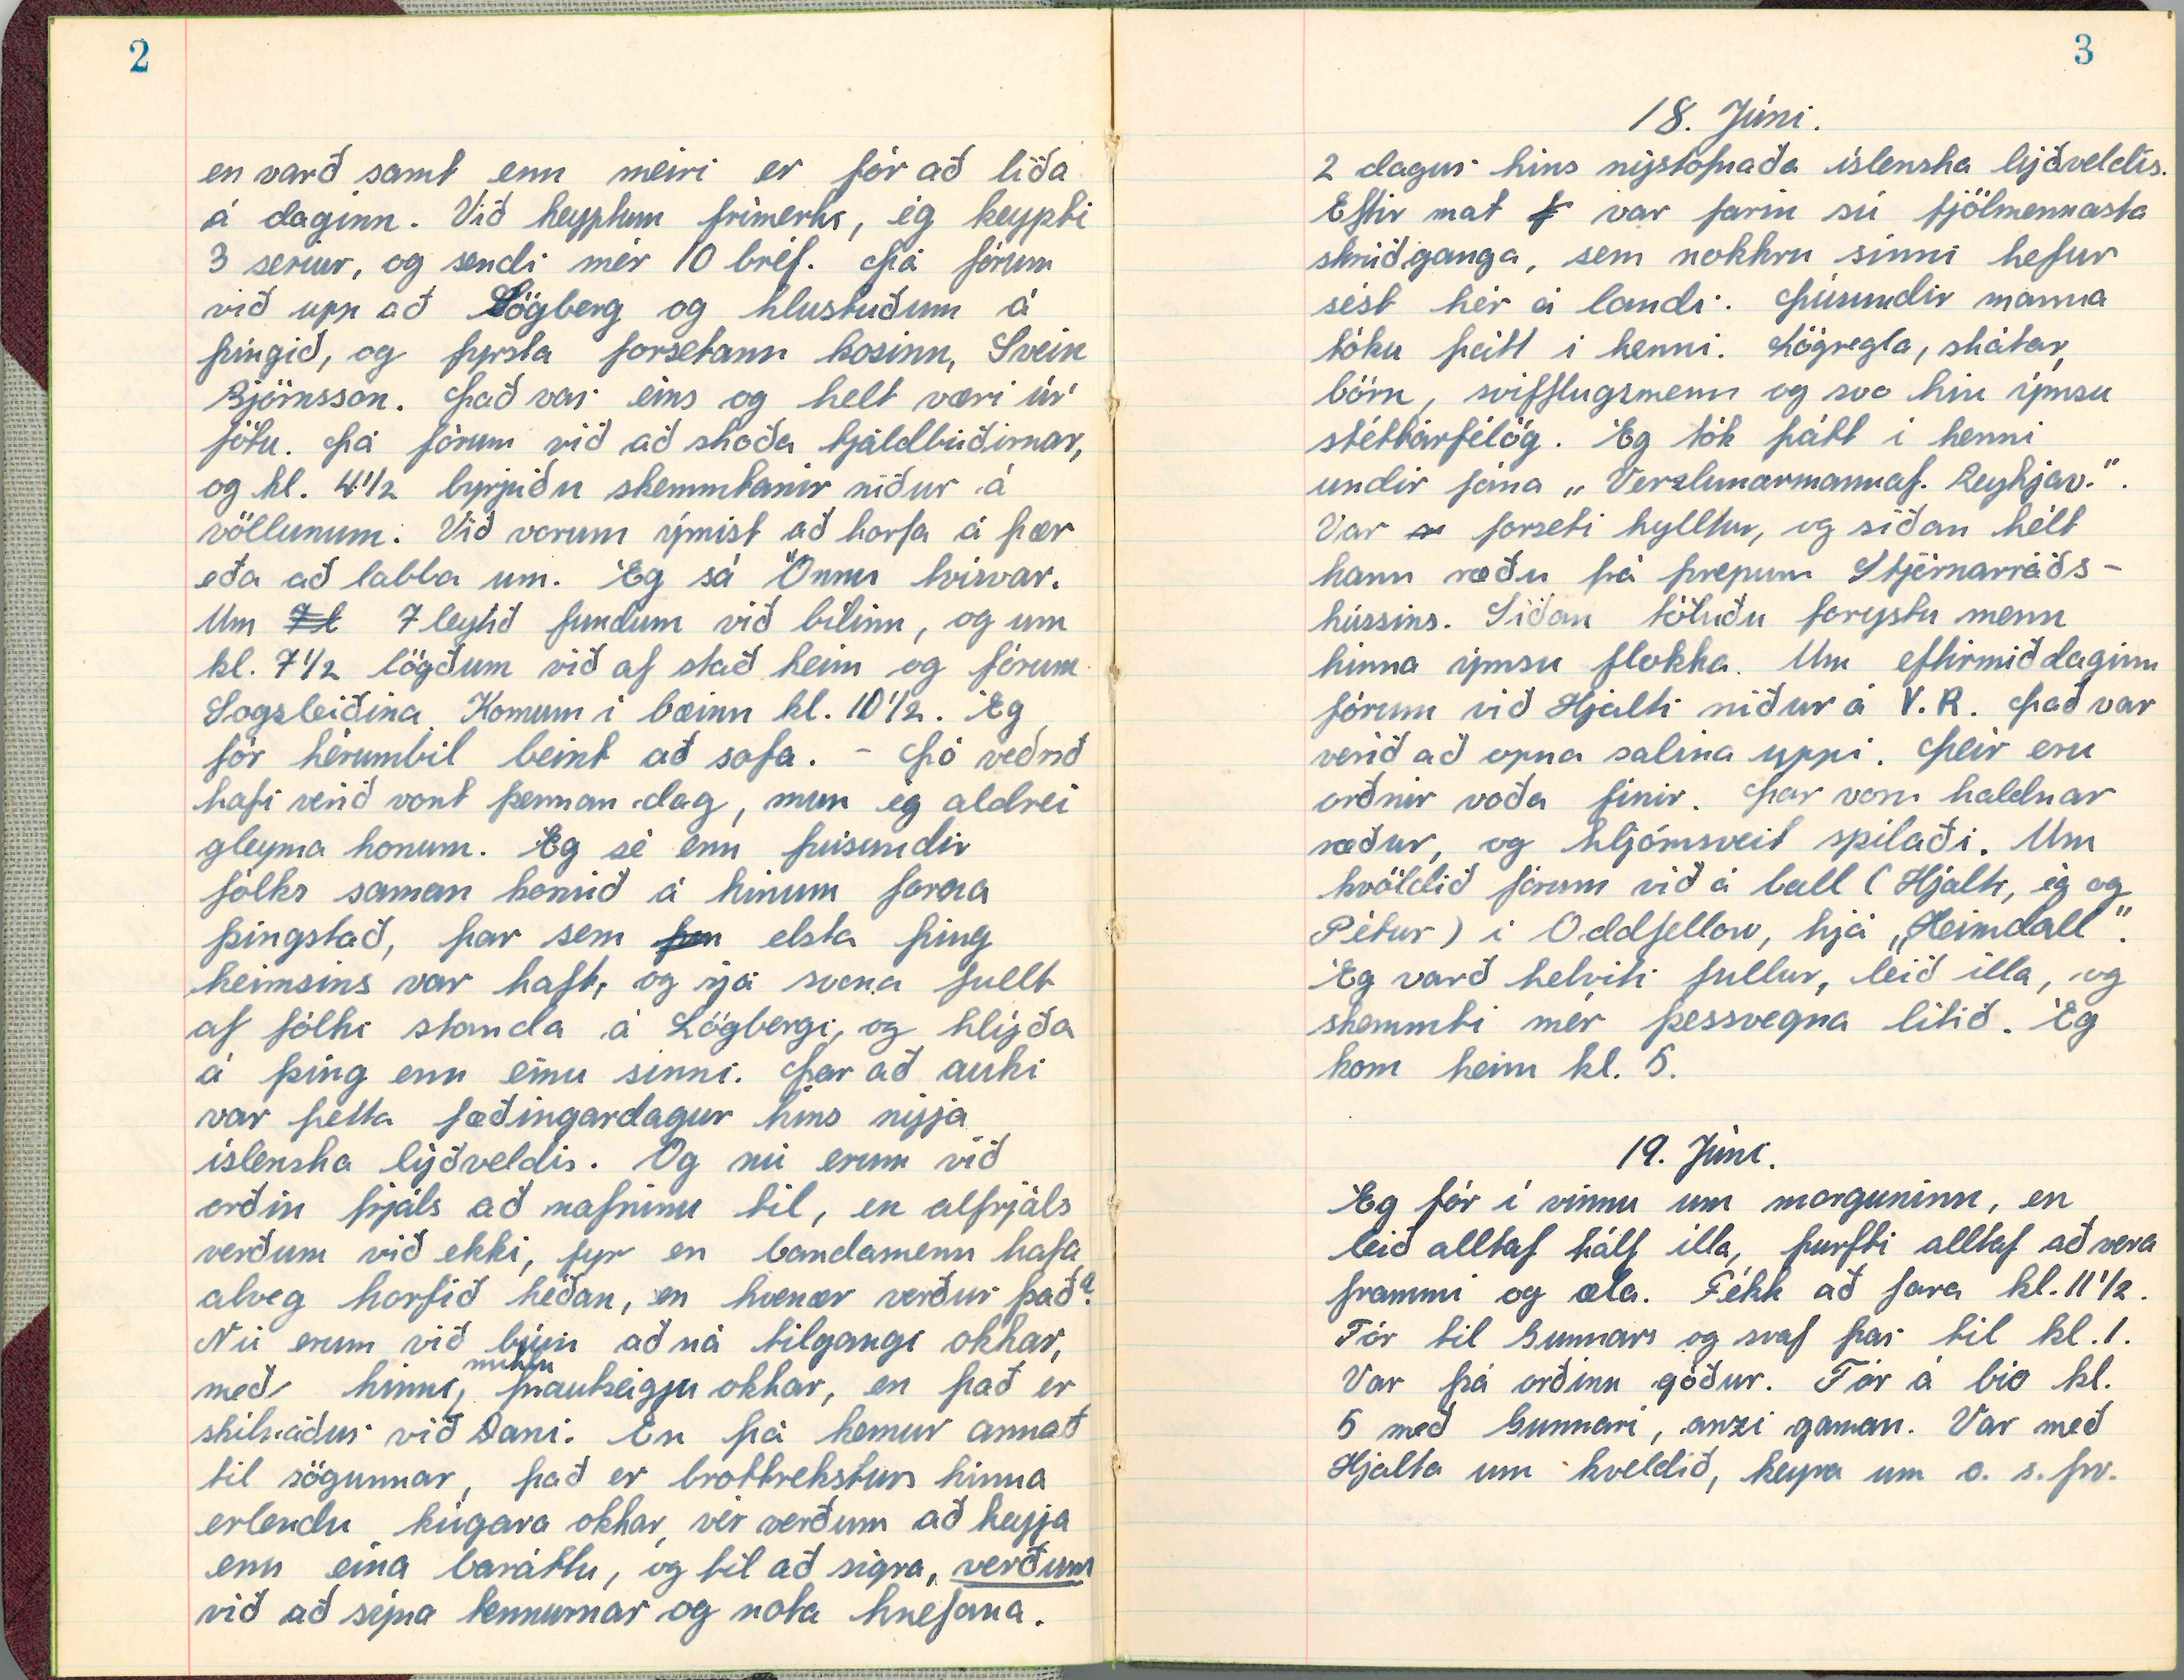 2
en varð samt enn meiri er fór að líða
á daginn. Við keyptum frímerki, ég keypti
3 seríur, og sendi mér 10 bréf. Þá fórum
við upp að Lögberg og hlustuðum á
þingið, og fyrsta forsetann kosinn, Svein
Björnsson. Það var eins og helt væri úr
fötu. Þá fórum við að skoða tjaldbúðirnar,
og kl. 4 1/2 byrjuðu skemmtanir niður á
völlunum. Við vorum ýmist að horfa á þær
eða að labba um. Ég sá Önnu tvisvar.
Um 7 leytið fundum við bílinn, og um
kl. 7 1/2 lögðum við af stað heim og fórum
Sogsleiðina. Komum í bæinn kl. 10 1/2. Ég
fór hérumbil beint að sofa. - Þó veðrið
hafi verið vont þennan dag, mun ég aldrei
gleyma honum. Ég sé enn þúsundir
fólks saman komið á hinum forna
þingstað, þar sem elsta þing
heimsins var haft, og sjá svona fullt
af fólki standa á Lögbergi, og hlýða
á þing enn einu sinni. Þar að auki
var þetta fæðingardagur hins nýja
íslenska lýðveldis. Og nú erum við
orðin frjáls að nafninu til, en alfrjáls
verðum við ekki, fyr en bandamenn hafa
alveg horfið héðan, en hvenær verður það?
Nú erum við búin að ná tilgangi okkar,
með hinni miklu þrautseigju okkar, en það er
skilnaður við Dani. En þá kemur annað
til sögunnar, það er brottrekstur hinna
erlendu kúgara okkar, vér verðum að heyja
enn eina baráttu, og til að sigra, verðum
við að sýna tennurnar og nota hnefana.
3
18. Júní.
2 dagur hins nýstofnaða íslenska lýðveldis.
Eftir mat var farin sú fjölmennasta
skrúðganga, sem nokkru sinni hefur
sést hér á landi. Þúsundir manna
tóku þátt í henni. Lögregla, skátar,
börn, svifflugsmenn og svo hin ýmsu
stéttarfélög. Ég tók þátt í henni
undir fána „Verzlunarmannaf. Reykjav.".
Var forseti hylltur, og síðan hélt
hann ræðu frá þrepum Stjórnarráðs-
hússins. Síðan töluðu forystu menn
hinna ýmsu flokka. Um eftirmiðdaginn
fórum við Hjalti niður á V.R. Það var
verið að opna salina uppi. Þeir eru
orðnir voða fínir. Þar voru haldnar
ræður, og hljómsveit spilaði. Um
kvöldið fórum við á ball (Hjalti, ég og
Pétur) í Oddfellow, hjá „Heimdall".
Ég varð helvíti fullur, leið illa, og
skemmti mér þessvegna lítið. Ég
kom heim kl. 5.
19. Júní.
Ég fór í vinnu um morguninn, en
leið alltaf hálf illa, þurfti alltaf að vera
frammi og æla. Fékk að fara kl. 11 1/2.
Fór til Gunnars og svaf þar til kl. 1.
Var þá orðinn góður. Fór á bio kl.
5 með Gunnari, anzi gaman. Var með
Hjalta um kveldið, keyra um o. s. frv.